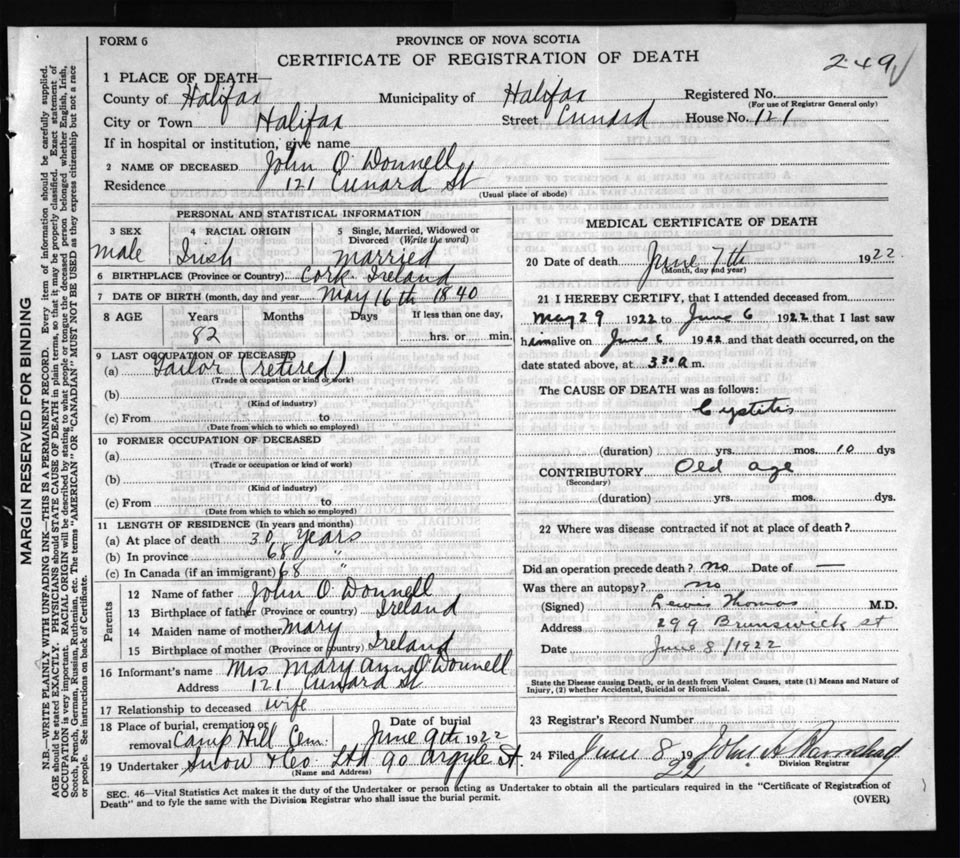 FORM 6
PROVINCE OF NOVA SCOTIA
CERTIFICATE OF REGISTRATION OF DEATH
249
1 PLACE OF DEATH—
County of Halifax Municipality of Halifax Registered No.
(For use of Registrar General only)
City or Town Halifax Street Cunard House No. 121
If in hospital or institution, give name
2 NAME OF DECEASED John O'Donnell
Residence 121 Cunard St
(Usual place of abode)
PERSONAL AND STATISTICAL INFORMATION
3 SEX 4 RACIAL ORIGIN 5 Single, Married, Widowed or Divorced (Write the word)
male Irish Married
6 BIRTHPLACE (Province or Country) Cork Ireland
7 DATE OF BIRTH (month, day and year) May 16th 1840
8 AGE Years Months Days If less than one day,
82 hrs. or min.
9 LAST OCCUPATION OF DECEASED
(a) Tailor (retired)
(Trade or occupation or kind of work)
(b)
(Kind of industry)
(c) From to
(Date from which to which so employed)
10 FORMER OCCUPATION OF DECEASED
(a)
(Trade or occupation or kind of work)
(b)
(Kind of industry)
(c) From to
(Date from which to which so employed)
11 LENGTH OF RESIDENCE (In years and months)
(a) At place of death 30 years
(b) In province 68 "
(c) In Canada (if an immigrant) 68 "
Parents
12 Name of father John O'Donnell
13 Birthplace of father (Province or country) Ireland
14 Maiden name of mother Mary
15 Birthplace of mother (Province or country) Ireland
16 Informant's name Mrs Mary Ann O'Donnell
Address 121 Cunard St
17 Relationship to deceased wife
18 Place of burial, cremation or removal Camp Hill Cem. Date of burial June 9th 1922
19 Undertaker Snow & Co Ltd 90 Argyle St.
(Name and Address)
MEDICAL CERTIFICATE OF DEATH
20 Date of death June 7th 1922
(Month, day and year)
21 I HEREBY CERTIFY, that I attended deceased from
May 29 1922 to June 6 1922 that I last saw
him alive on June 6 1922 and that death occurred, on the
date stated above, at 3 30 a m.
The CAUSE OF DEATH was as follows:
Cystitis
(duration) yrs. mos. 10 dys
CONTRIBUTORY Old age
(Secondary)
(duration) yrs. mos. dys.
22 Where was disease contracted if not at place of death?
Did an operation precede death? no Date of —
Was there an autopsy? no
(Signed) Lewis Thomas M.D.
Address 299 Brunswick st
Date June 8/1922
State the Disease causing Death, or in death from Violent Causes, state (1) Means and Nature of Injury, (2) whether Accidental, Suicidal or Homicidal.
23 Registrar's Record Number
24 Filed June 8 1922 John A
Division Registrar
SEC. 46—Vital Statistics Act makes it the duty of the Undertaker or person acting as Undertaker to obtain all the particulars required in the "Certificate of Registration of
Death" and to fyle the same with the Division Registrar who shall issue the burial permit.
(OVER)
MARGIN RESERVED FOR BINDING
N.B.—WRITE PLAINLY WITH UNFADING INK—THIS IS A PERMANENT RECORD. Every item of information should be carefully supplied.
AGE should be stated EXACTLY. PHYSICIANS should STATE CAUSE OF DEATH in plain terms, so that it may be properly classified. Exact statement of
OCCUPATION is very important. RACIAL ORIGIN will be described by stating to what people or tongue the deceased person belonged whether English, Irish,
Scotch, French, German, Russian, Ruthenian, etc. The terms "AMERICAN" OR "CANADIAN" MUST NOT BE USED as they express citizenship but not a race
or people. See instructions on back of Certificate.